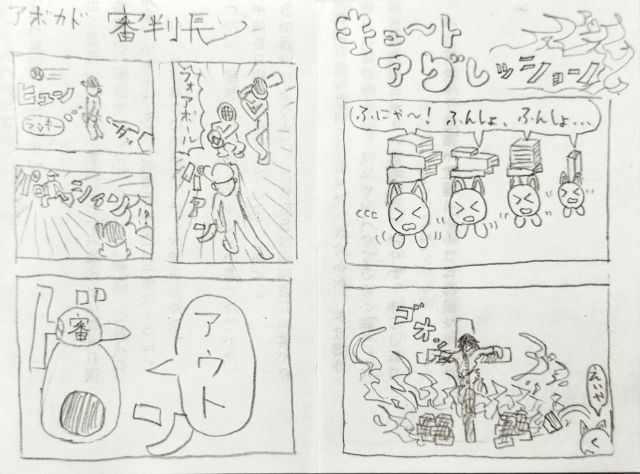 アボカド 審判長
フォアボール
パァン
ヒュン
ラッキー
ダッ
シィン
審
ドン
アウト
キュート
アグレッショール
ふにゃ〜! ふんしょ、ふんしょ…
ゴオッ
えいや